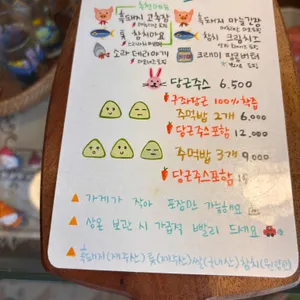 추천메뉴
흑돼지 고추장
흑돼지 마늘간장
참치마요
참치 크림치즈
소라 데리야끼
크래미 땅콩버터
당근주스 6,500
구좌당근 100% 착즙
주먹밥 2개 6,000
당근주스포함 12,000
주먹밥 3개 9,000
당근주스포함
가게가 작아 포장만 가능해요
상온 보관 시 가급적 빨리 드세요
흑돼지(제주산) 쌀(국내산) 참치(원양산)